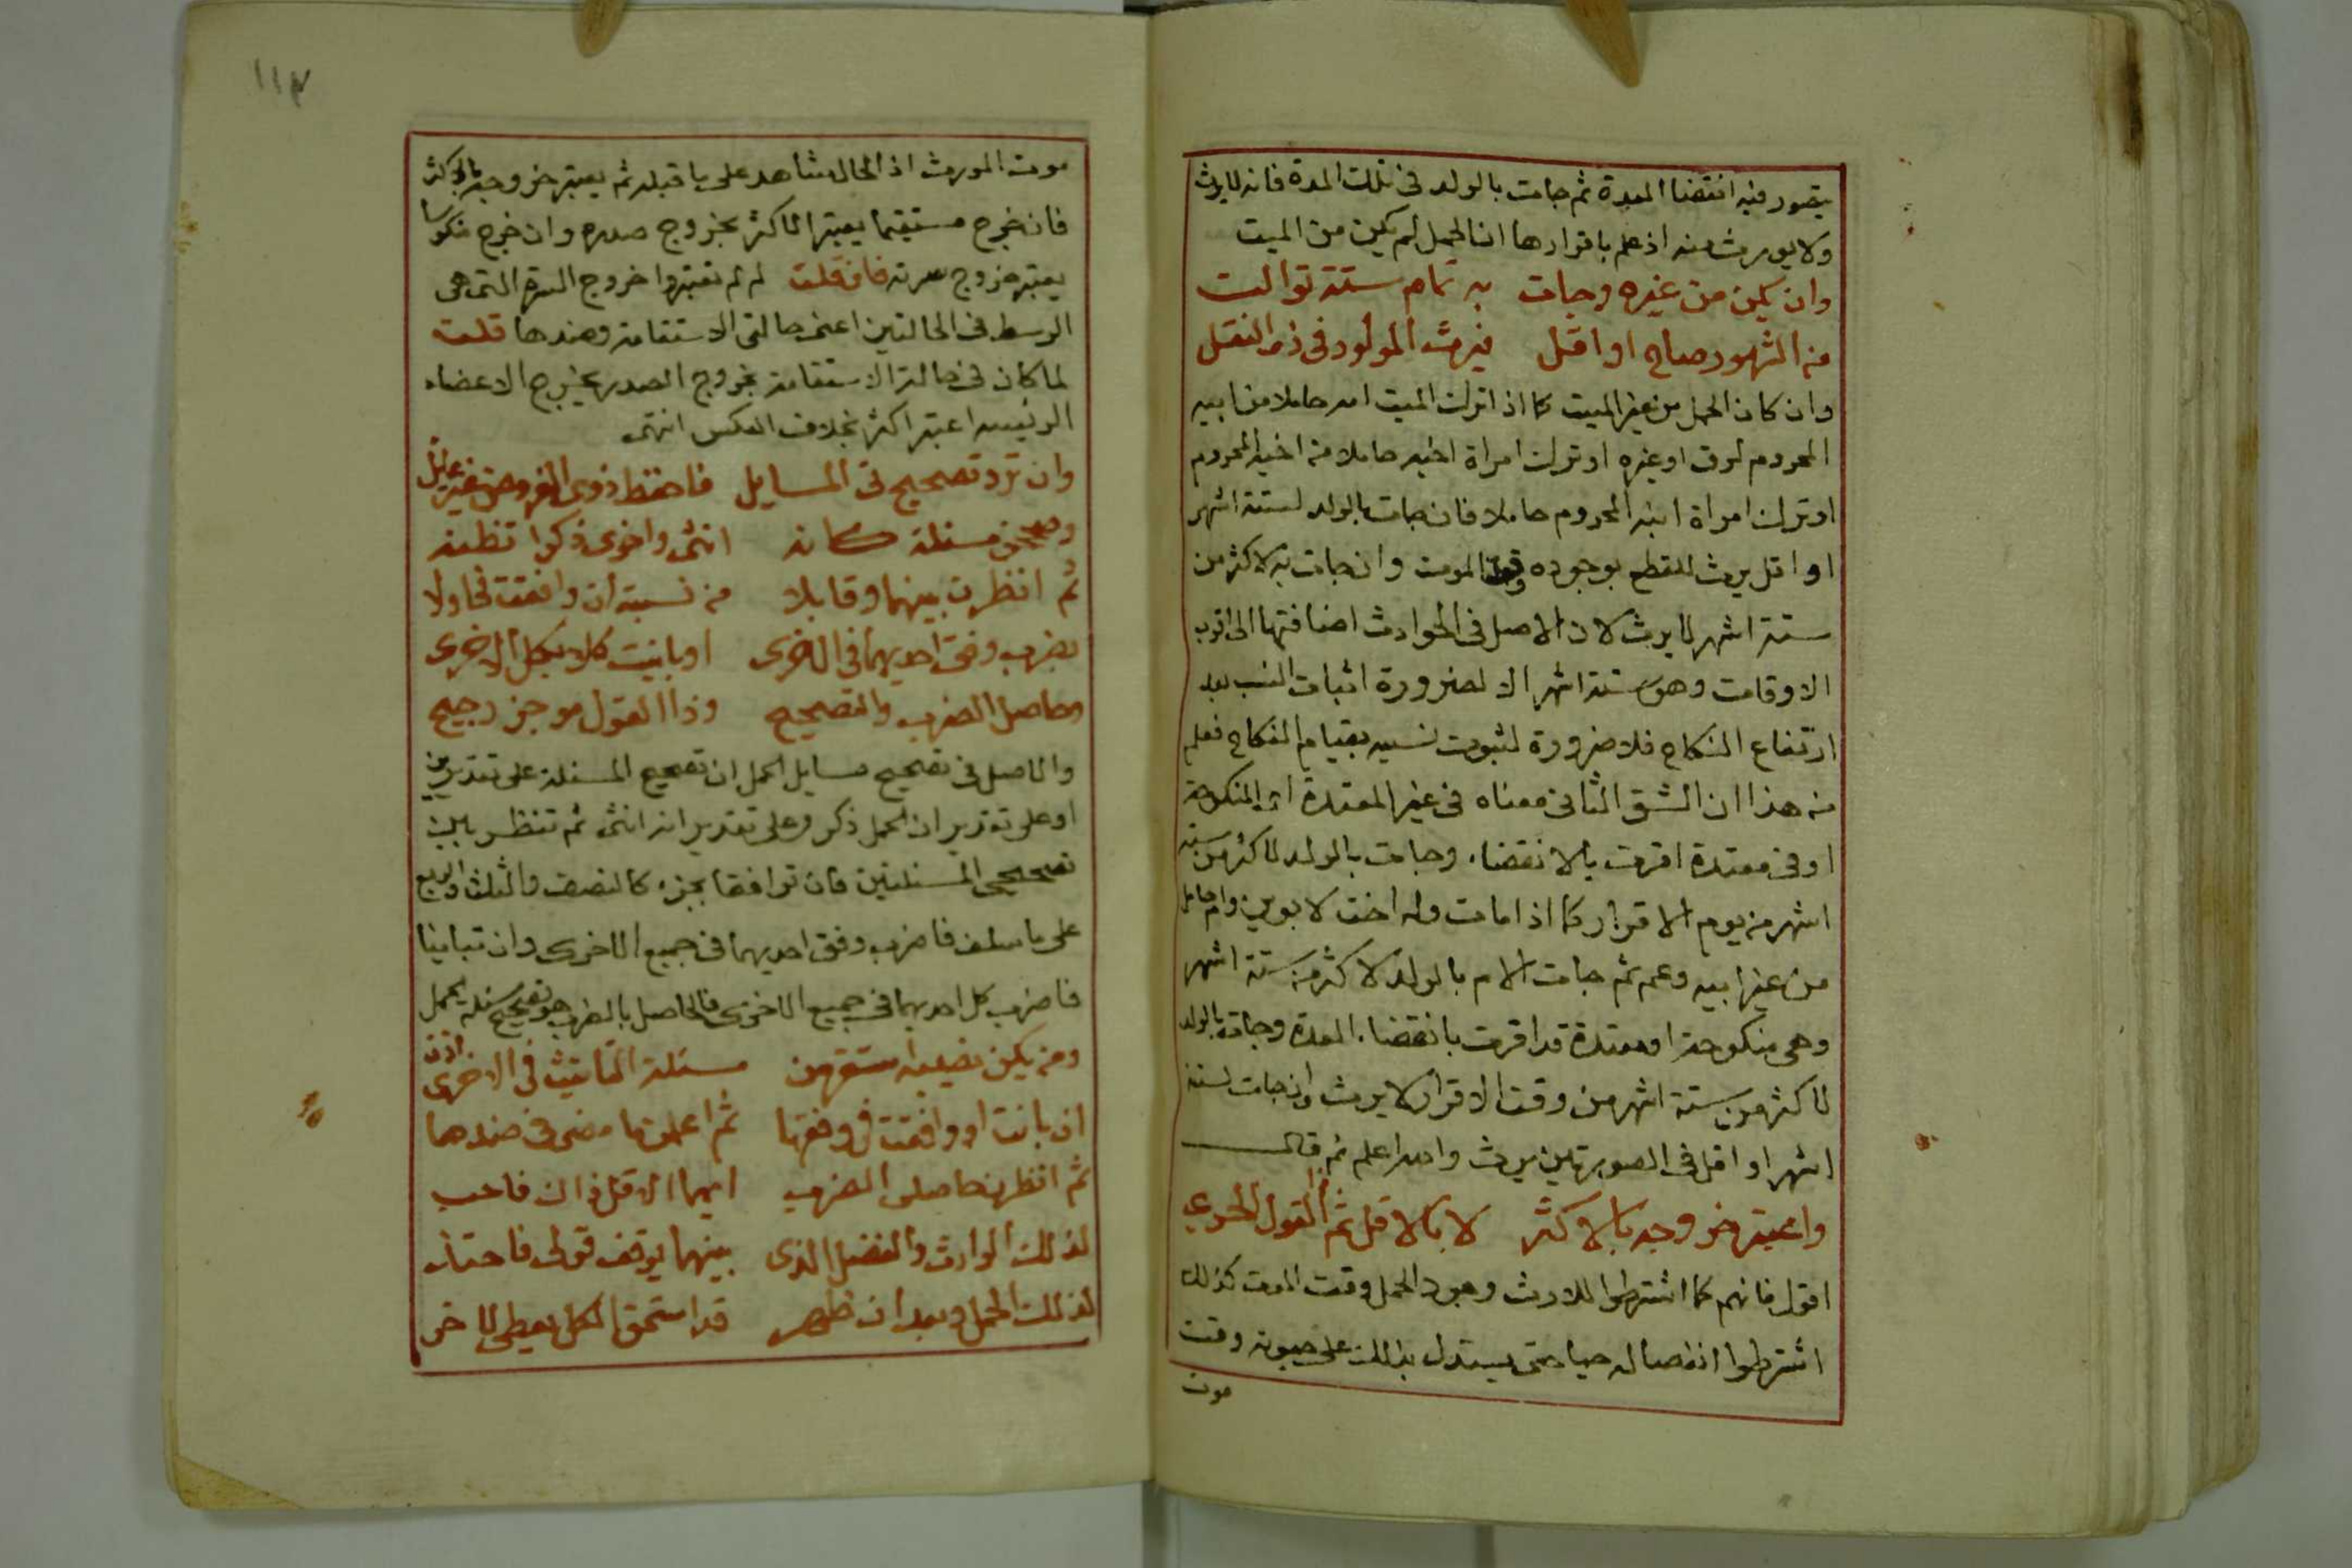 يتصور فيه انقضا العدة ثم جات بالولد فى تلك المدة فانه لا يرث
ولا يورث منه اذ علم باقرارها ان الحمل لم يكن من الميت
وان يكن من غيره وجات به تمام ستة توالت
من الشهور صاح او اقل فيرث المولود فى ذى النقل
وان كان الحمل من غير الميت كما اذا ترك الميت امه حاملا من ابيه
المحروم لرق او غيره او ترك امراة اخيه حاملا من اخيه المحروم
او ترك امراة ابنه المحروم حاملا فان جات بالولد لستة اشهر
او اقل يرث للقطع بوجوده وقت الموت وان جات به لاكثر من
ستة اشهر لا يرث لان الاصل فى الحوادث اضافتها الى اقرب
الاوقات وهو ستة اشهر الا لضرورة اثبات النسب بعد
ارتفاع النكاح فلا ضرورة لثبوت نسبه بقيام النكاح فعلم
من هذا ان الشق الثانى معناه فى غير المعتدة اى المنكوحة
او فى معتدة اقرت بالانقضاء وجات بالولد لاكثر من ستة
اشهر من يوم الاقرار كما اذا مات وله اخت لابوين وام حامل
من غير ابيه وعم ثم جات الام بالولد لاكثر من ستة اشهر
وهى منكوحة او معتدة قد اقرت بانقضاء العدة وجات بالولد
لاكثر من ستة اشهر من وقت الاقرار لا يرث وان جات لستة
اشهر او اقل فى الصورتين يرث واصر اعلم ثم قال
واعتبر خروجه بالاكثر لا بالاقل ثم القول الحرى
اقول فانهم كما اشترطوا للارث وجود الحمل وقت الموت كذلك
اشترطوا انفصاله حيا حتى يستدل بذلك على حيوته وقت
موت
١١٣
موت المورث اذ الحال شاهد على ما قبله ثم يعتبر خروجه بالاكثر
فان خرج مستقيما يعتبر الاكثر بخروج صدره وان خرج منكوسا
يعتبر خروج سرته فان قلت لم لم تعتبروا خروج السرة التى هى
الوسط فى الحالتين اعنى حالتى الاستقامة وضدها قلت
لما كان فى حالة الاستقامة بخروج الصدر يخرج الاعضاء
الرئيسه اعتبر اكثر بخلاف العكس انتهى
وان ترد تصحيح ذى المسايل فاحفظ ذوى الفروض غير عايل
وصححن مسئلة كانه انثى واخرى ذكرا تظنه
ثم انظرن بينهما وقابلا من نسبة ان وافقت فحاولا
بضرب وفق احديهما فى الاخرى او باينت كلا بكل الاخرى
وحاصل الضرب والتصحيح وذا القول موجز رجيح
والاصل فى تصحيح مسايل الحمل ان تصحيح المسئلة على تقديرين
او على تقدير ان الحمل ذكر وعلى تقدير انه انثى ثم تنظر بين
تصحيحى المسئلتين فان توافقا بجزء كالنصف والثلث والربع
على ما سلف فاضرب وفق احديهما فى جميع الاخرى وان تباينا
فاضرب كل احديهما فى جميع الاخرى فالحاصل بالضرب هو تصحيح مسئلة الحمل
ومن يكن نصيبه من مسئلة التانيث فى الاخرى اذن
ان بانت او وافقت فى وفقها ثم اعملن ما مضى فى ضدها
ثم انظرن حاصلى الضرب ايهما الاقل ذاك فاحب
لذلك الوارث والفضل الذى بينهما يوقف قولى فاحتذ
لذلك الحمل وبعد ان ظهر قد استحق الكل يعطى للاخر